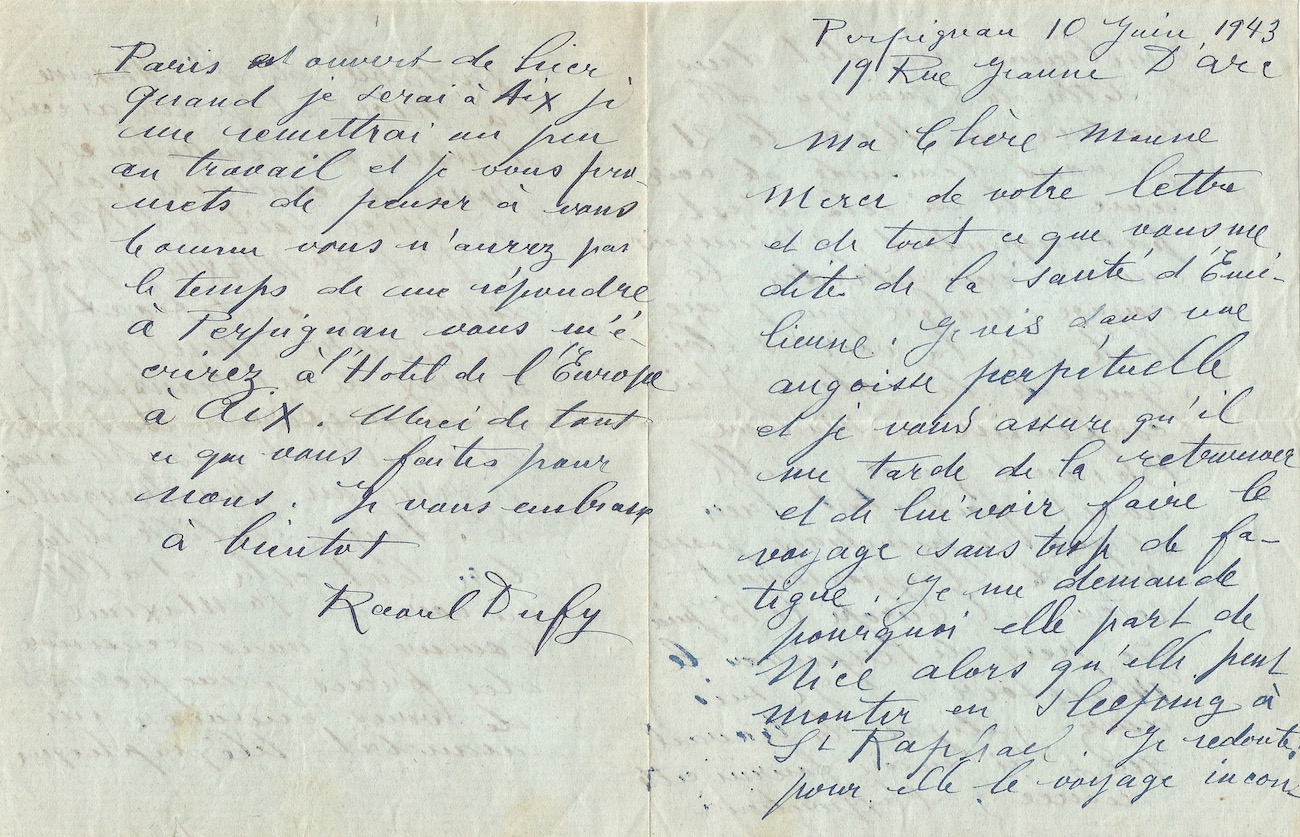 Perpignan 10 Juin 1943
19 Rue Jeanne D'arc
Ma Chère Moune
Merci de votre lettre
et de tout ce que vous me
dites de la santé d'Emi-
lienne. Je vis dans une
angoisse perpétuelle
et je vous assure qu'il
me tarde de la retrouver
et de lui voir faire le
voyage sans trop de fa-
tigue. Je me demande
pourquoi elle part de
Nice alors qu'elle peut
monter en sleeping à
St Raphael. Je redoute
pour elle le voyage incon-
Paris est ouvert de hier
quand je serai à Aix je
me remettrai un peu
au travail et je vous pro-
mets de penser à vous
Comme vous n'aurez pas
le temps de me répondre
à Perpignan vous m'é-
crirez à l'Hotel de l'Europe
à Aix. Merci de tout
ce que vous faites pour
nous. Je vous embrasse
à bientot
Raoul Dufy